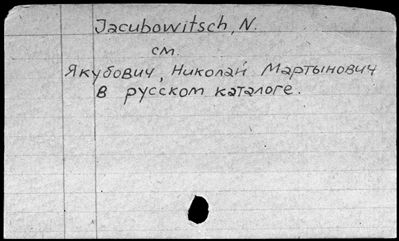 Jacubowitsch, N.
см.
Якубович, Николай Мартынович
в русском каталоге.